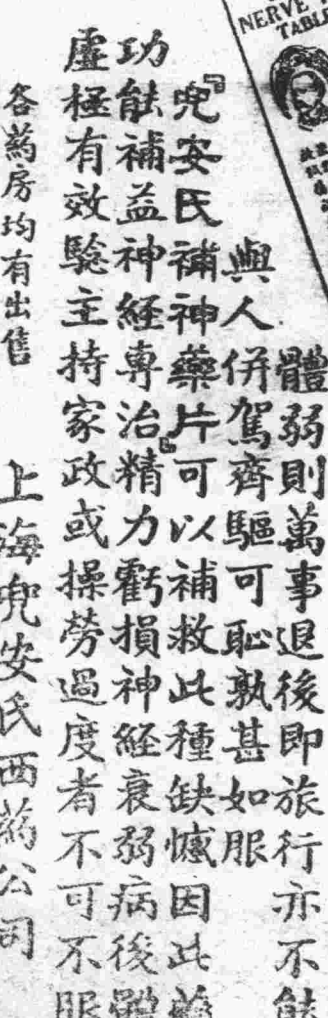 NERVE
TABLE
體弱則萬事退後即旅行亦不能
與人併駕齊驅可恥孰甚如服
『兜安氏補神藥片』可以補救此種缺憾因此藥
功能補益神經專治精力虧損神経衰弱病後體
虛極有效驗主持家政或操勞過度者不可不服
各藥房均有出售 上海兜安氏西藥公司